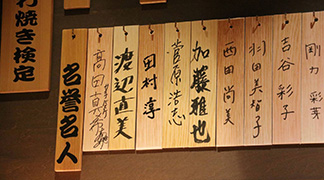 剛力彩芽
吉谷彩子
羽田美智子
西田尚美
加藤雅也
菅原浩志
田村淳
渡辺直美
高田真希
名誉名人
焼き検定